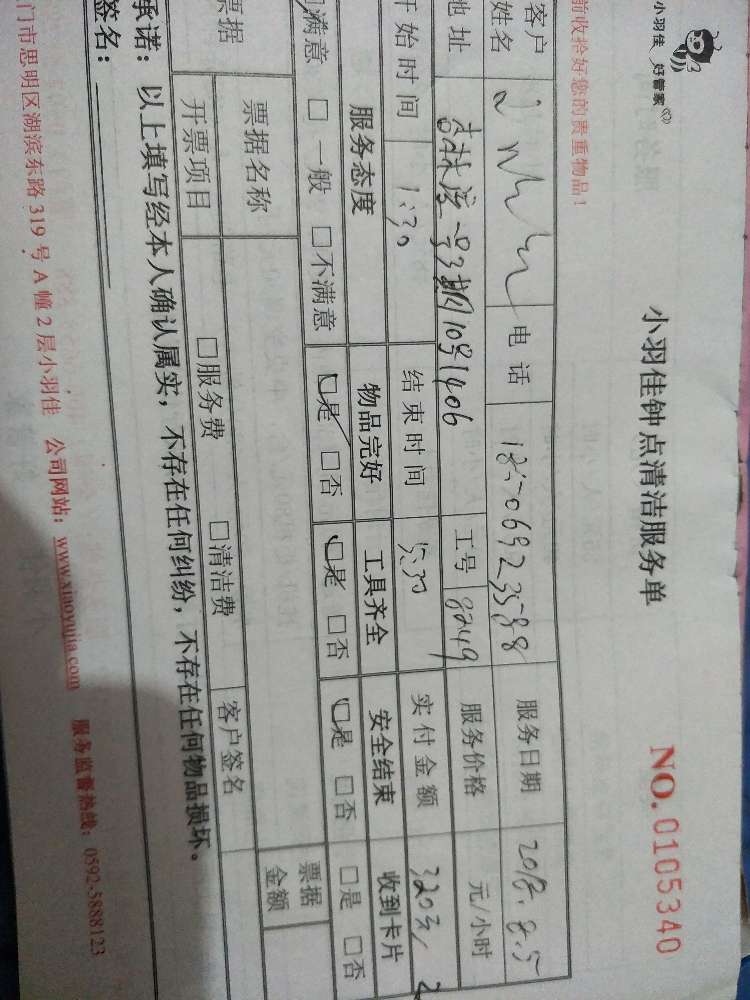 小羽佳 好管家
小羽佳钟点清洁服务单
NO. 0105340
前收给好您的贵重物品！
客户姓名 电话 服务日期 2018.8.5
地址 工号 8249 服务价格 元/小时
开始时间 1:30 结束时间 5:30 实付金额 320元
服务态度 物品完好 工具齐全 安全结束 收到卡片
满意 □ 一般 □不满意 □是 □否 □是 □否 □是 □否 □是 □否
票据 票据名称 票据金额
开票项目 □服务费 □清洁费 客户签名
承诺：以上填写经本人确认属实，不存在任何纠纷，不存在任何物品损坏。
签名：
门市思明区湖滨东路319号A幢2层小羽佳 公司网站：www.xiaoyujia.com 服务监督热线：0592-5888123